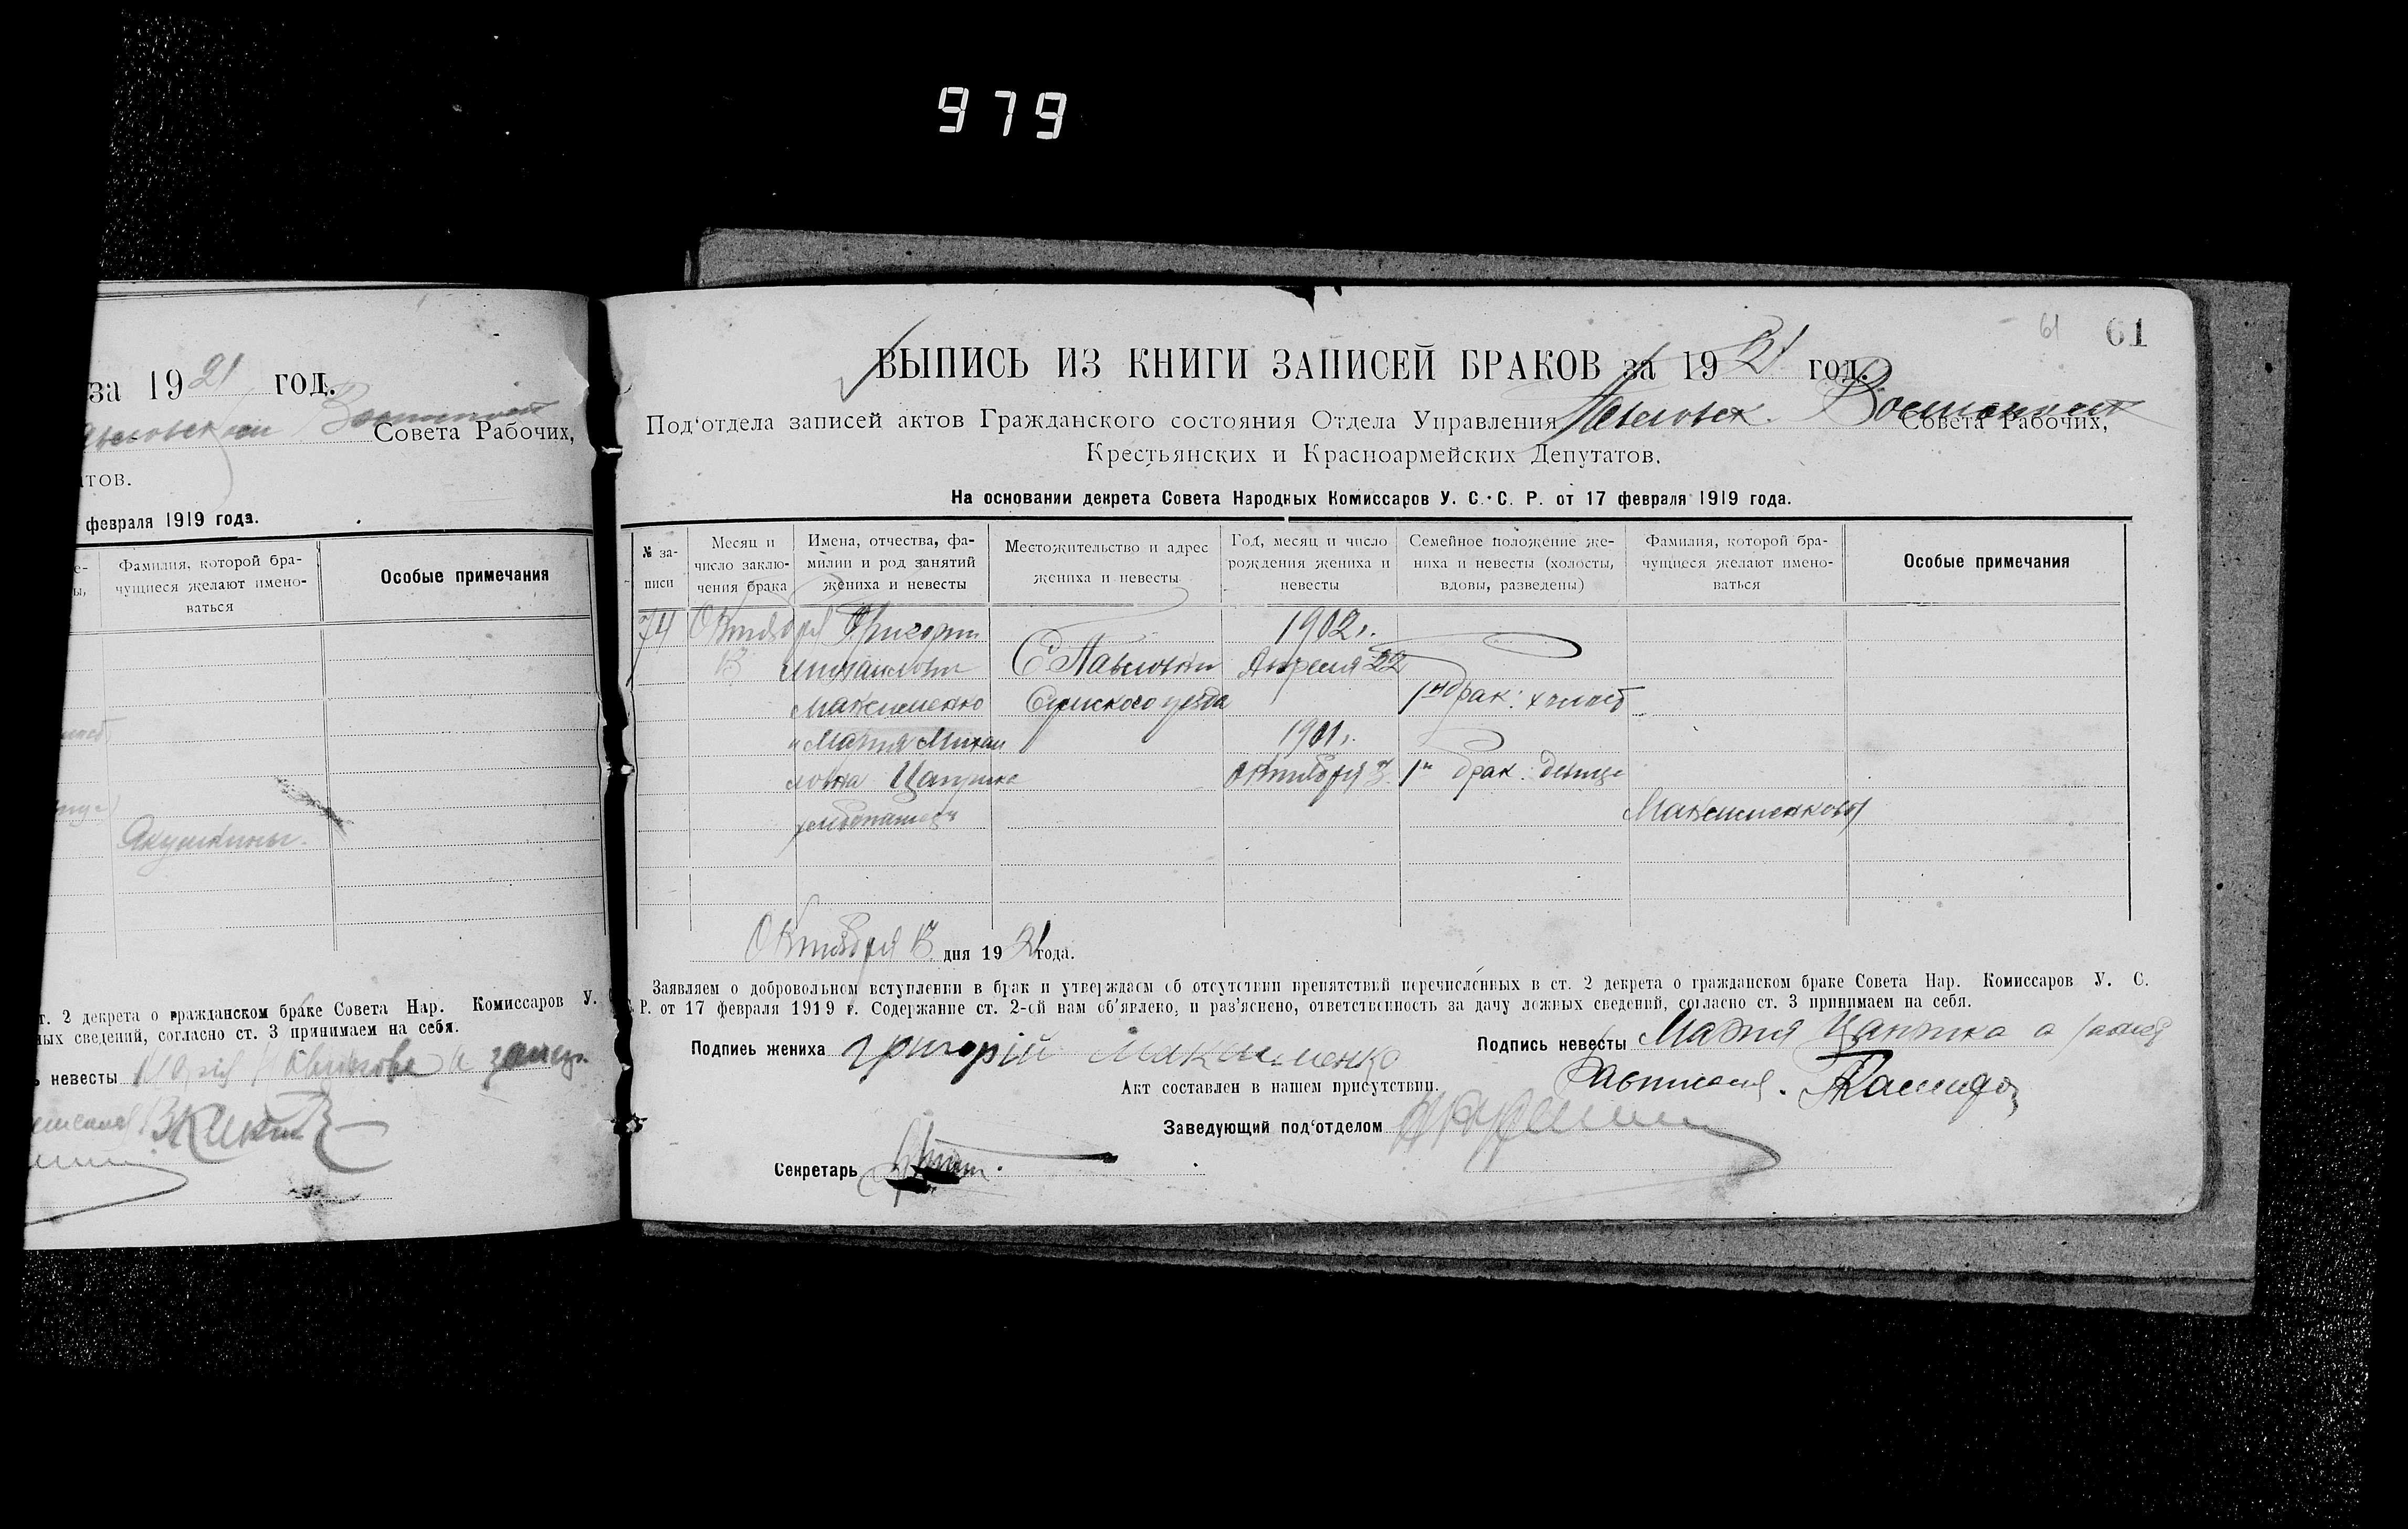 979
за 1921 год.
Совета Рабочих,
тов.
февраля 1919 года.
Фамилия, которой бра-
чущиеся желают имено-
ваться
Особые примечания
Якушкины.
т. 2 декрета о гражданском браке Совета Нар. Комиссаров У.
ных сведений, согласно ст. 3 принимаем на себя.
невесты
61 61
ВЫПИСЬ ИЗ КНИГИ ЗАПИСЕЙ БРАКОВ за 1921 год.
Под'отдела записей актов Гражданского состояния Отдела Управления Павловск. Совета Рабочих,
Крестьянских и Красноармейских Депутатов.
На основании декрета Совета Народных Комиссаров У. С. С. Р. от 17 февраля 1919 года.
№ за-
писи
Месяц и
число заклю-
чения брака
Имена, отчества, фа-
милии и род занятий
жениха и невесты
Местожительство и адрес
жениха и невесты
Год, месяц и число
рождения жениха и
невесты
Семейное положение же-
ниха и невесты (холосты,
вдовы, разведены)
Фамилия, которой бра-
чущиеся желают имено-
ваться
Особые примечания
74 Октября Григорий 1902 г.
13 Михайлович С Павловки Апреля 22
Максименко Сумского уезда 1й брак: холост
и Мария Михаи 1901 г.
ловна Октября 3 1й брак: девица
хлебопашец
Максименковы
Октября 13 дня 1921 года.
Заявляем о добровольном вступлении в брак и утверждаем об отсутствии препятствий перечисленных в ст. 2 декрета о гражданском браке Совета Нар. Комиссаров У. С.
С. Р. от 17 февраля 1919 г. Содержание ст. 2-ой нам об'явлено, и раз'яснено, ответственность за дачу ложных сведений, согласно ст. 3 принимаем на себя.
Подпись жениха Григорій Максименко
Подпись невесты Мария
Акт составлен в нашем присутствии.
Заведующий под'отделом
Секретарь